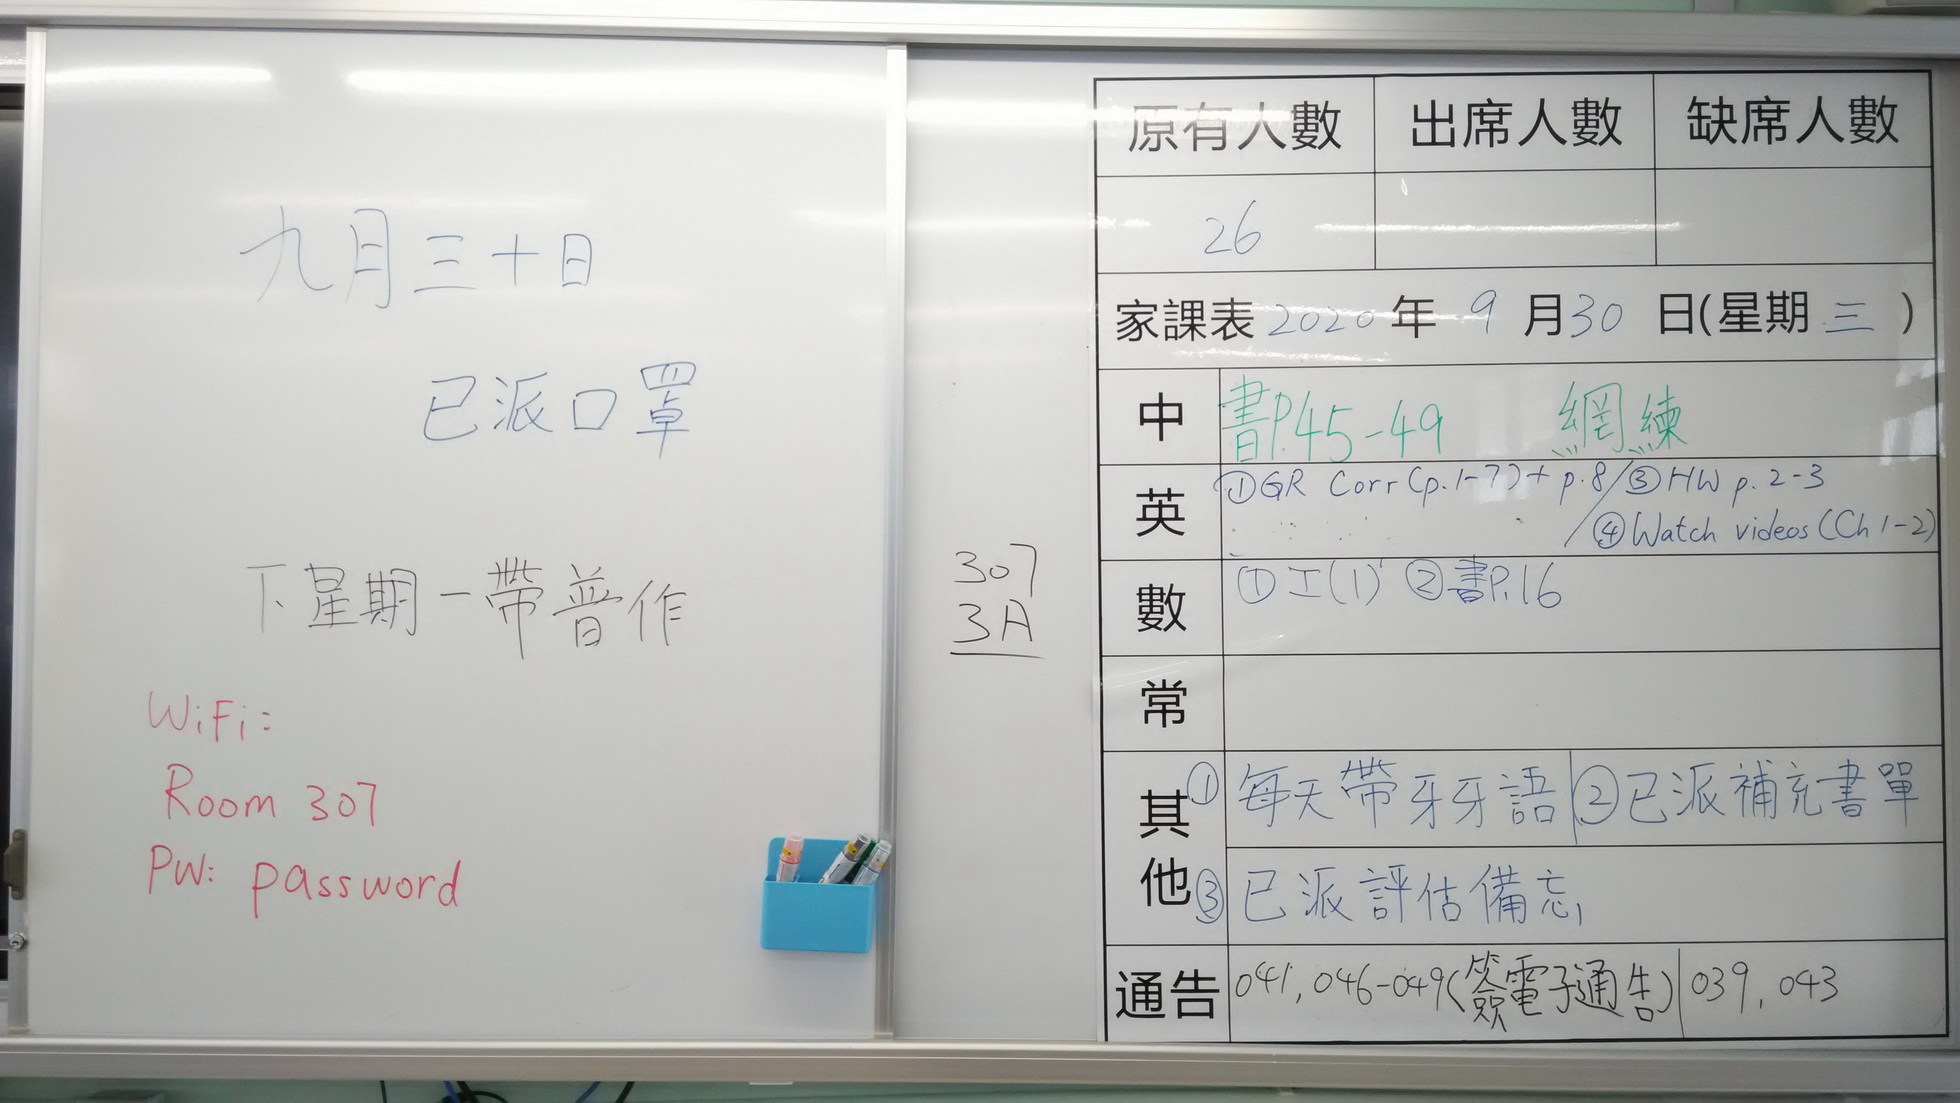 九月三十日
已派口罩
下星期一帶普作
WiFi:
Room 307
PW: password
307
3A
原有人數 出席人數 缺席人數
26
家課表 2020 年 9 月 30 日(星期 三 )
中 書P.45-49 網練
英 ①GR Corr (p.1-7)+ p.8/③HW p.2-3
④Watch videos (Ch 1-2)
數 ①工(1) ②書P.16
常
其他 ①每天帶牙牙語 ②已派補充書單
③已派評估備忘
通告 041, 046-049(簽電子通告) 039, 043